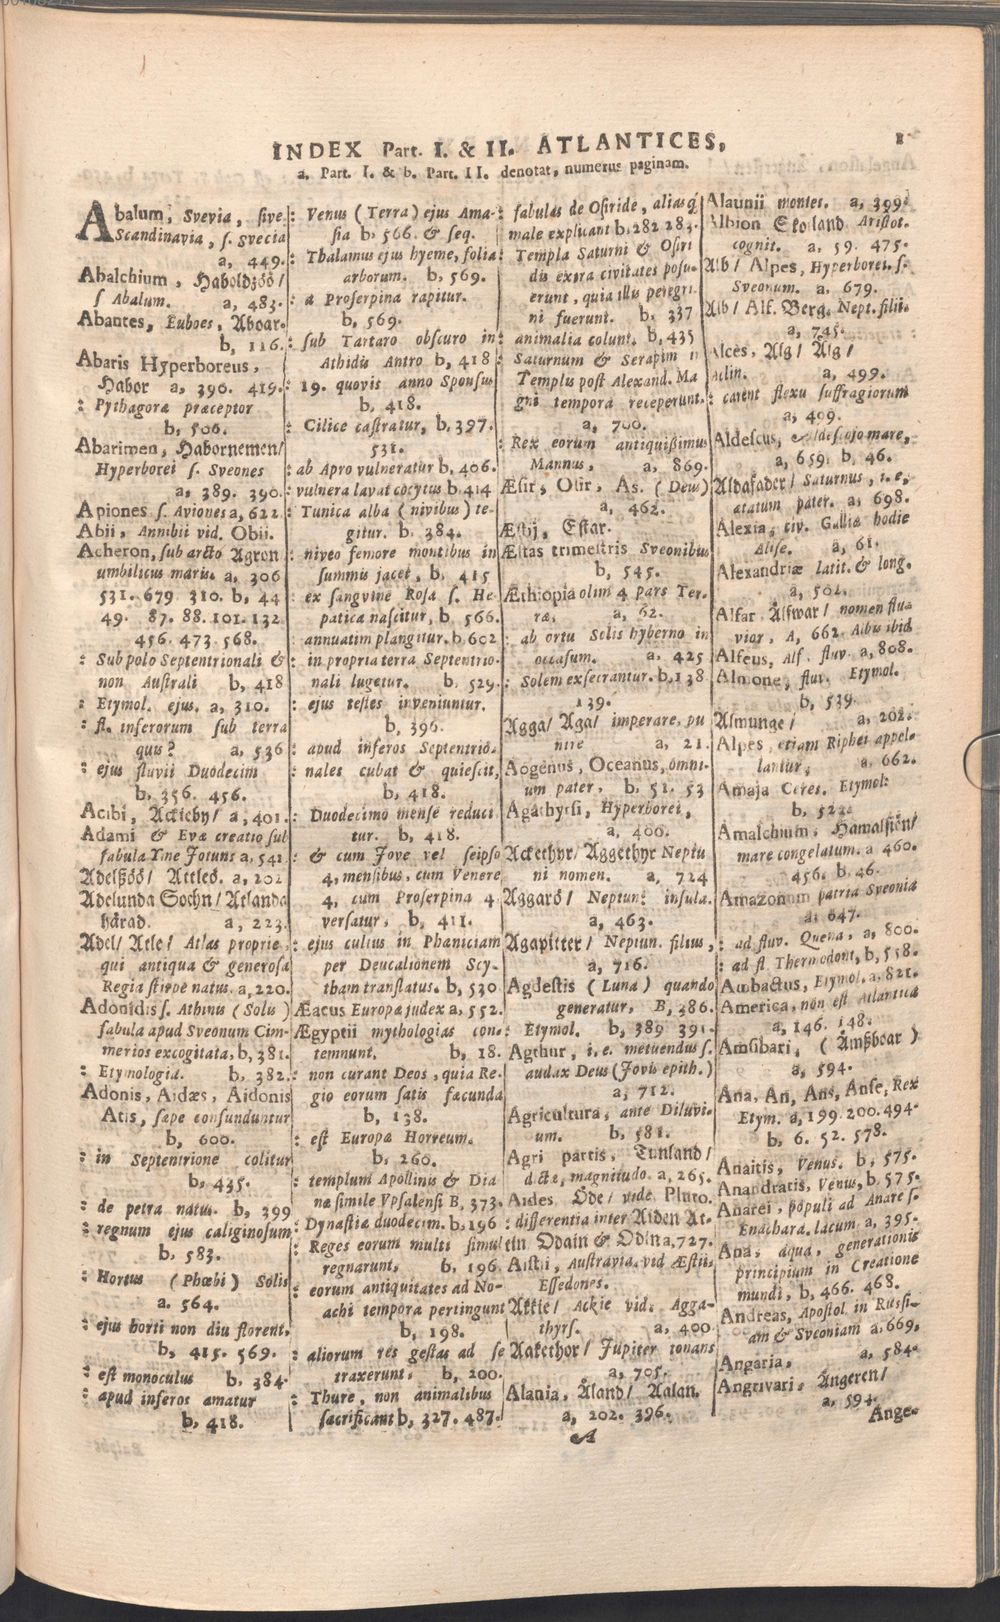 INDEX Part. I. & II. ATLANTICES,
1
a, Part. I. & b. Part. II. denotat, numerus paginam.
Abalum, Svevia, sive
Scandinavia, s. Svecia
a, 449.
Abalchium, Haboldzöö/
s Abalum. a, 483.
Abantes, Euboes, Aboar.
b, 116.
Abaris Hyperboreus,
Habor a, 396. 419.
: Pythagoræ præceptor
b, 506.
Abarimen, Habornemen/
Hyperborei s. Sveones
a, 389. 390.
Apiones s. Aviones a, 622
Abii, Annibii vid. Obii.
Acheron, sub arcto Agron
umbilicus maris. a, 306
531. 679. 310. b, 44
49. 87. 88. 101. 132
456. 473. 568.
: Sub polo Septentrionali &
non Australi b, 418
: Etymol. ejus. a, 310.
: fl. inferorum sub terra
quis? a, 536
: ejus fluvii Duodecim
b, 356. 456.
Acibi, Ackieby/ a, 401.
Adami & Evæ creatio sub
fabula Yme Jotuns a, 541
Adelßöö/ Attleö. a, 202
Adelunda Sochn/ Atlanda
härad. a, 223.
Adel/ Atle/ Atlas proprie
qui antiqua & generosa
Regia stirpe natus. a, 220.
Adonidis s. Athinis (Solis)
fabula apud Sveonum Cim-
merios excogitata, b, 381.
: Etymologia. b, 382.
Adonis, Aidæs, Aidonis
Atis, sæpe confunduntur
b, 600.
: in Septentrione colitur
b, 435.
: de petra natus. b, 399
: regnum ejus caliginosum
b, 583.
: Hortus (Phœbi) Solis
a. 564.
: ejus horti non diu florent,
b, 415. 569.
: est monoculus b, 384.
: apud inferos amatur
b, 418.
: Venus (Terra) ejus Ama-
sia b, 566. & seq.
: Thalamus ejus hyeme, folia
arborum. b, 569.
: a Proserpina rapitur.
b, 569.
: sub Tartaro obscuro in
Athidis Antro b, 418
: 19. quovis anno Sponsus
b, 418.
: Cilice castratur, b, 397.
531.
: ab Apro vulneratur b, 406.
: vulnera lavat cocytus b 414
: Tunica alba (nivibus) te-
gitur. b, 384.
: niveo femore montibus in
summis jacet, b, 415
: ex sangvine Rosa s. He-
patica nascitur, b, 566.
: annuatim plangitur. b, 602
: in propria terra Septentrio-
nali lugetur. b, 529.
: ejus testes inveniuntur.
b, 396.
: apud inferos Septentrio-
nales cubat & quiescit,
b, 418.
: Duodecimo mense reduci-
tur. b, 418.
: & cum Jove vel seipso
4, mensibus, cum Venere
4, cum Proserpina 4.
versatur, b, 411.
: ejus cultus in Phæniciam
per Deucalionem Scy-
tham translatus. b, 530
Æacus Europæ judex a, 552.
Ægyptii mythologias con-
temnunt. b, 18.
: non curant Deos, quia Re-
gio eorum satis fæcunda
b, 138.
: est Europæ Horreum.
b, 260.
: templum Apollinis & Dia
næ simile Upsalensi B, 373.
: Dynastiæ duodecim. b, 196
: Reges eorum multi simul
regnarunt, b, 196
: eorum antiquitates ad No-
achi tempora pertingunt
b, 198.
: aliorum res gestas ad se
traxerunt, b, 200.
: Thure, non animalibus
sacrificant b, 327. 487.
: fabulas de Osiride, aliasq́
male explicant b, 282 283.
: Templa Saturni & Osiri
dis extra civitates posu-
erunt, quia illis peregri-
ni fuerunt. b, 337
: animalia colunt, b, 435
: Saturnum & Serapim
Templis post Alexand. Ma
gni tempora receperunt.
a, 700.
: Rex eorum antiquißimus
Mannus, a, 869.
Æsir, Osir, As. (Deus)
a, 462.
Æstij, Estar.
Æstas trimestris Sveonibus
b, 545.
Æthiopia olim 4 pars Ter-
ræ, a, 62.
: ab ortu Solis hyberno in
occasum. a, 425
: Solem exsecrantur. b, 138
139.
Agga/ Aga/ imperare, pu
nire a, 21.
Aogenus, Oceanus, omni-
um pater, b, 51. 53
Agathyrsi, Hyperborei,
a, 400.
Ackethyr/ Aggethyr Neptu
ni nomen. a, 724
Aggarö/ Neptuni insula.
a, 463.
Agapitter/ Neptun. filius,
a, 716.
Agdestis (Luna) quando
generatur, B, 386.
: Etymol. b, 389 391.
Agthur, i. e. metuendus s.
audax Deus (Jovis epith.)
a, 712.
Agricultura, ante Diluvi-
um. b, 581.
Agri partis, Tunland/
dicta, magnitudo. a, 265.
Aides Öde/ vide Pluto.
: differentia inter Aiden At-
tin Odain & Odina, 727.
Aistii, Austravia. vid Æstii,
Essedones.
Akkie/ Ackie vid. Agga-
thyrs. a, 400
Aakethor/ Jupiter tonans
a, 705.
Alania, Åland/ Aalan.
a, 202. 396.
Alaunii montes. a, 399
Albion Skotland Aristot.
cognit. a, 59. 475.
Alb/ Alpes, Hyperborei. s.
Sveonum. a, 679.
Alb/ Alf. Berg. Nept. filii.
a, 745.
Alces, Alg/ Älg/
a, 499.
: carent flexu suffragiorum
a, 409.
Aldescus,
a, 659. b, 46.
Aldafader/ Saturnus, i. e.
ætatum pater. a, 698.
Alexia, civ. Galliæ hodie
Alise. a, 61.
Alexandriæ latit. & long.
a, 502.
Alfar Älfwar/ nomen fluviorum
vior, A, 662. Albis ibid
Alfeus, Alf. fluv. a, 808.
Almone, fluv. Etymol.
b, 539.
Almunge/ a, 202.
Alpes, etiam Riphei appel-
lantur, a, 662.
Amaja Ceres. Etymol.
b, 522.
Amalchium, Hamalsiön/
mare congelatum. a 460.
456. b, 46.
Amazonum patria Sveonia
a, 647.
: ad fluv. Quena, a, 800.
: ad fl Thermodont, b, 558.
Ambactus, Etymol. a, 821.
America, non est Atlantica
a, 146. 148.
Amsibari, (Ämßboar)
a, 594.
Ana, An, Ans, Anse, Rex
Etym. a, 199. 200. 494.
b, 6. 52. 578.
Anaitis, Venus. b, 575.
Anandratis, Venus, b, 575.
Anarei, populi ad Anare s.
Enachara. lacum. a, 395.
Ana, aqua, generationis
principium in Creatione
mundi, b, 466. 468.
Andreas, Apostol in Russi-
am & Sveoniam a, 669,
Angaria, a, 584.
Angrivari, Ängeren/
a, 594.
Ange-
A